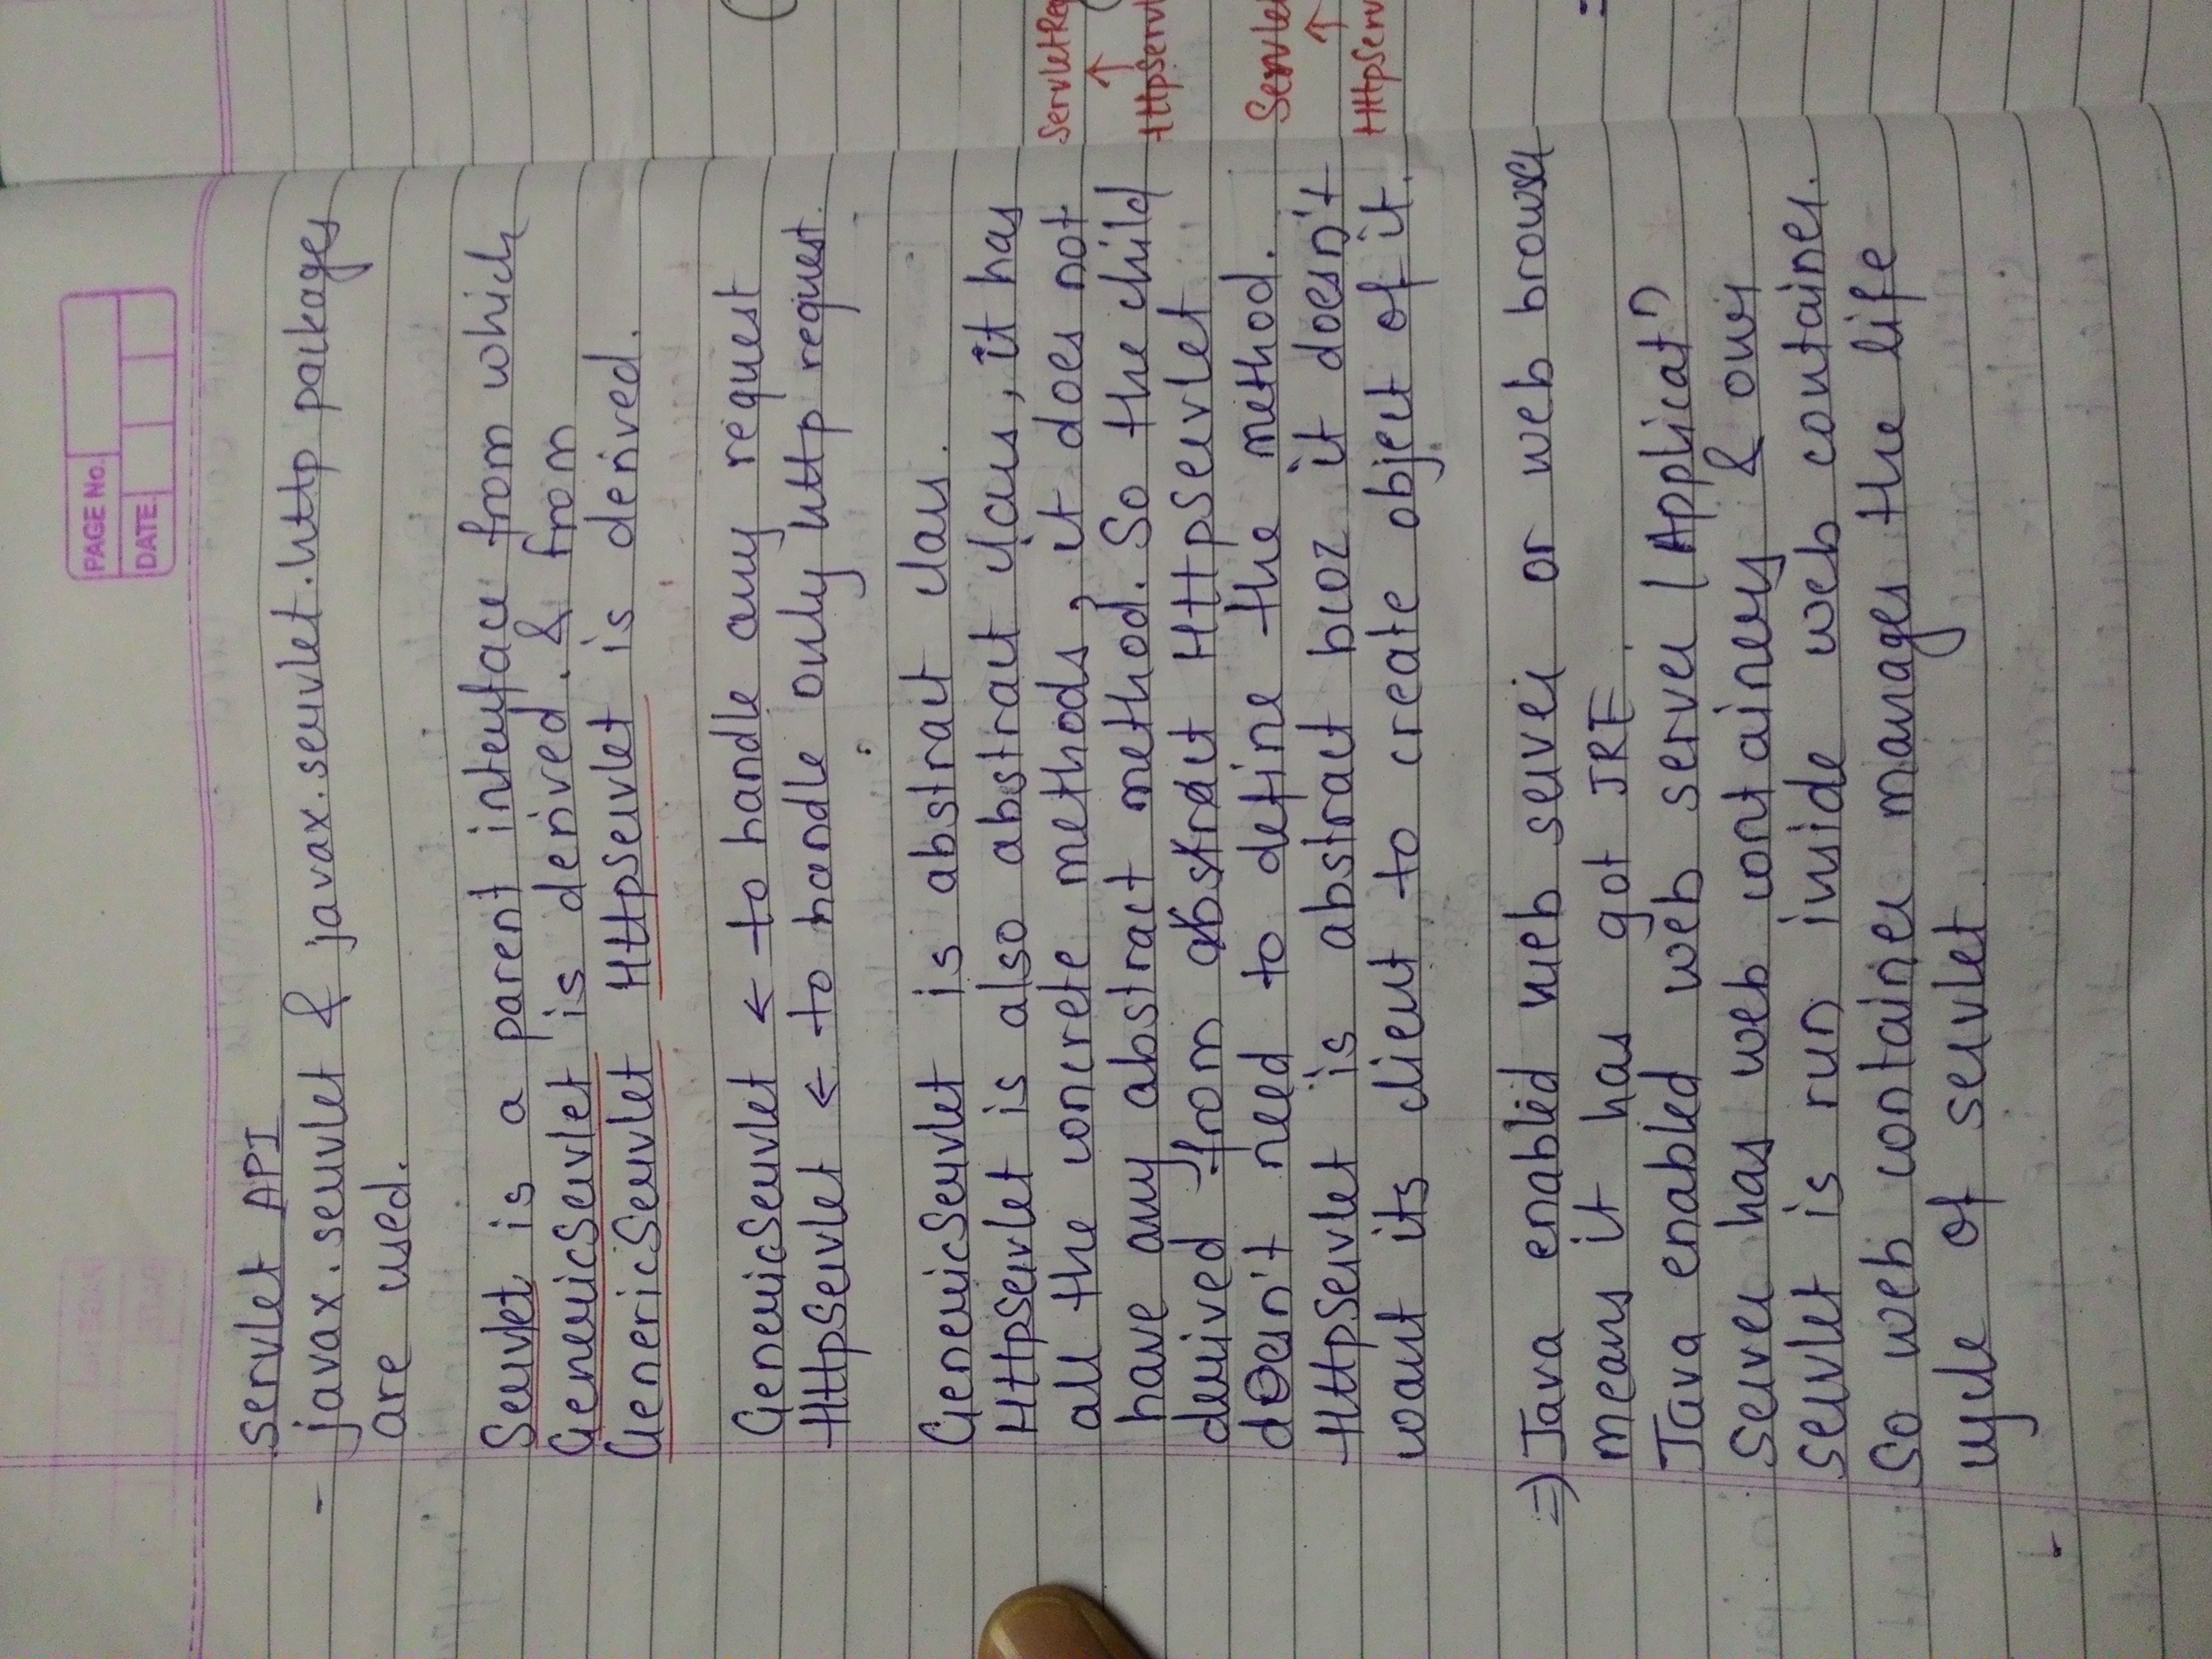 PAGE No.
DATE
Servlet API
- javax.servlet & javax.servlet.http packages
are used.
Servlet is a parent interface from which
GenericServlet is derived. & from
GenericServlet HttpServlet is derived.
GenericServlet ← to handle any request
HttpServlet ← to handle only http request.
GenericServlet is abstract class.
HttpServlet is also abstract class, it has
all the concrete methods, it does not
have any abstract method. So the child
derived from abstract HttpServlet
doesn't need to define the method.
HttpServlet is abstract bcoz it doesn't
want its client to create object of it.
⇒ Java enabled web server or web browser
means it has got JRE.
Java enabled web server / Applicatn
server has web containers & our
servlet is run inside web container.
So web container manages the life
cycle of servlet.
ServletReq
↑
HttpServl
Servle
↑
HttpServ